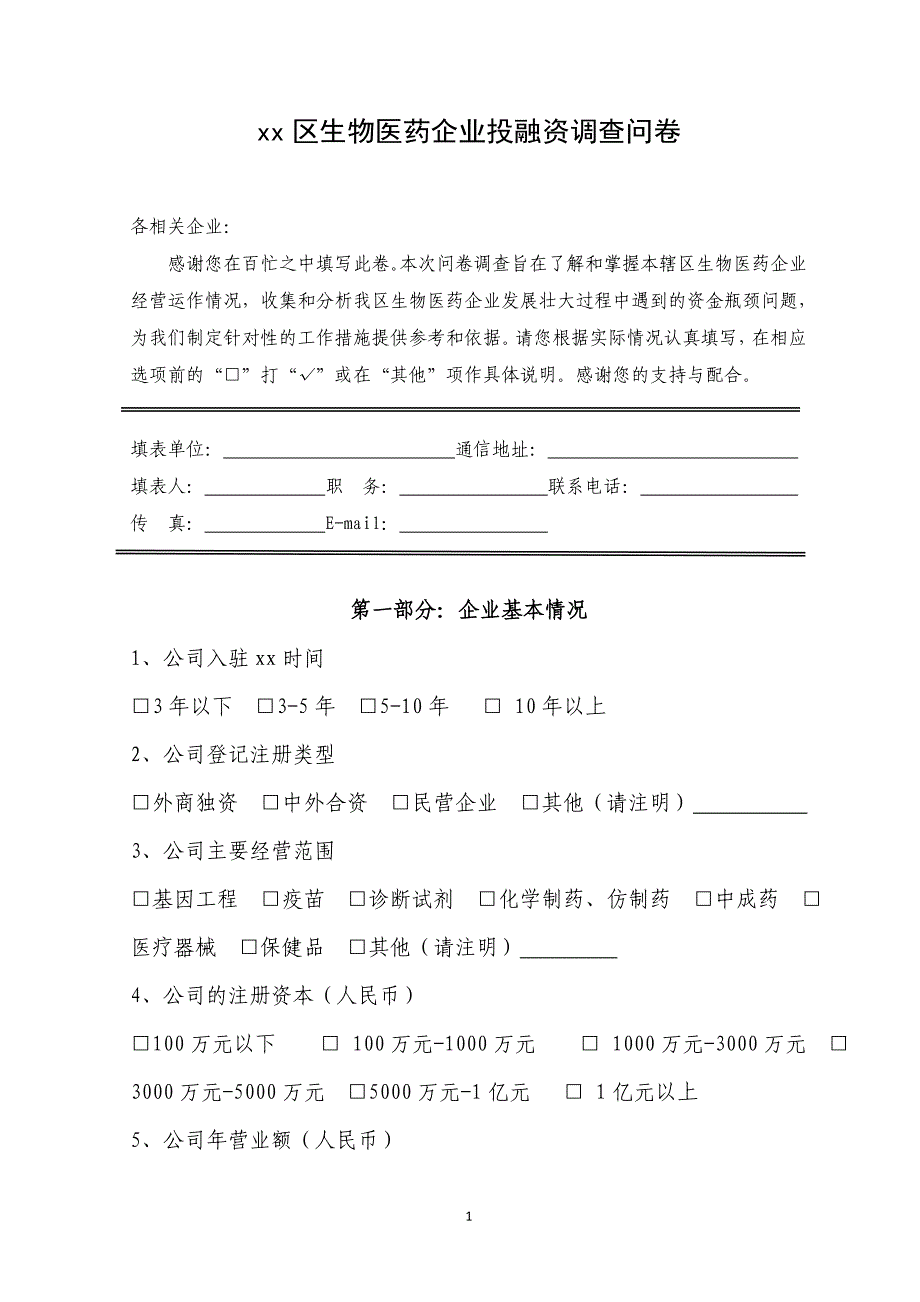 xx 区生物医药企业投融资调查问卷
各相关企业：
感谢您在百忙之中填写此卷。本次问卷调查旨在了解和掌握本辖区生物医药企业
经营运作情况，收集和分析我区生物医药企业发展壮大过程中遇到的资金瓶颈问题，
为我们制定针对性的工作措施提供参考和依据。请您根据实际情况认真填写，在相应
选项前的“□”打“√”或在“其他”项作具体说明。感谢您的支持与配合。
填表单位：____________________通信地址：____________________
填表人：__________职　务：____________联系电话：____________
传　真：__________E-mail：____________
第一部分：企业基本情况
1、公司入驻 xx 时间
□3 年以下　□3-5 年　□5-10 年　□ 10 年以上
2、公司登记注册类型
□外商独资　□中外合资　□民营企业　□其他（请注明）_________
3、公司主要经营范围
□基因工程　□疫苗　□诊断试剂　□化学制药、仿制药　□中成药　□
医疗器械　□保健品　□其他（请注明）________
4、公司的注册资本（人民币）
□100 万元以下　□ 100 万元-1000 万元　□ 1000 万元-3000 万元　□
3000 万元-5000 万元　□5000 万元-1 亿元　□ 1 亿元以上
5、公司年营业额（人民币）
1